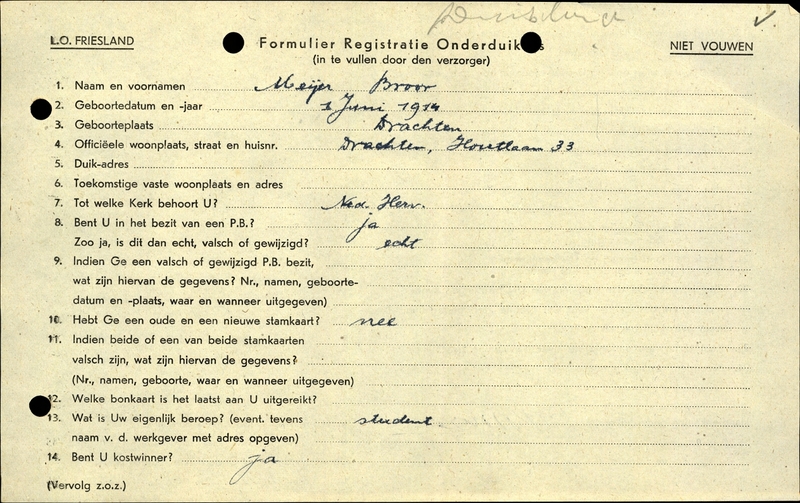 L.O. FRIESLAND
Formulier Registratie Onderduikers
NIET VOUWEN
(in te vullen door den verzorger)
1. Naam en voornamen Meijer Broor
2. Geboortedatum en -jaar 1 Juni 1914
3. Geboorteplaats Drachten
4. Officiëele woonplaats, straat en huisnr. Drachten, Houtlaan 33
5. Duik-adres
6. Toekomstige vaste woonplaats en adres
7. Tot welke Kerk behoort U? Ned. Herv.
8. Bent U in het bezit van een P.B.? ja
Zoo ja, is dit dan echt, valsch of gewijzigd? echt
9. Indien Ge een valsch of gewijzigd P.B. bezit,
wat zijn hiervan de gegevens? Nr., namen, geboorte-
datum en -plaats, waar en wanneer uitgegeven)
10. Hebt Ge een oude en een nieuwe stamkaart? nee
11. Indien beide of een van beide stamkaarten
valsch zijn, wat zijn hiervan de gegevens?
(Nr., namen, geboorte, waar en wanneer uitgegeven)
12. Welke bonkaart is het laatst aan U uitgereikt?
13. Wat is Uw eigenlijk beroep? (event. tevens student
naam v. d. werkgever met adres opgeven)
14. Bent U kostwinner? ja
(Vervolg z.o.z.)